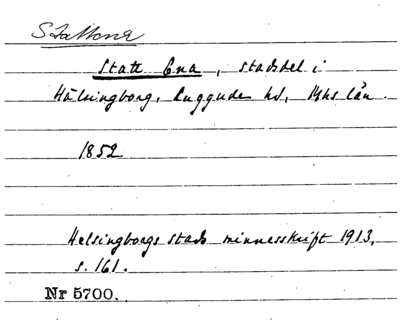 Slattena
Statt Ena, stadsdel i
Hälsingborg, Luggude hd, Mhs län.
1852
Helsingborgs stads minnesskrift 1913,
s. 161.
Nr 5700.